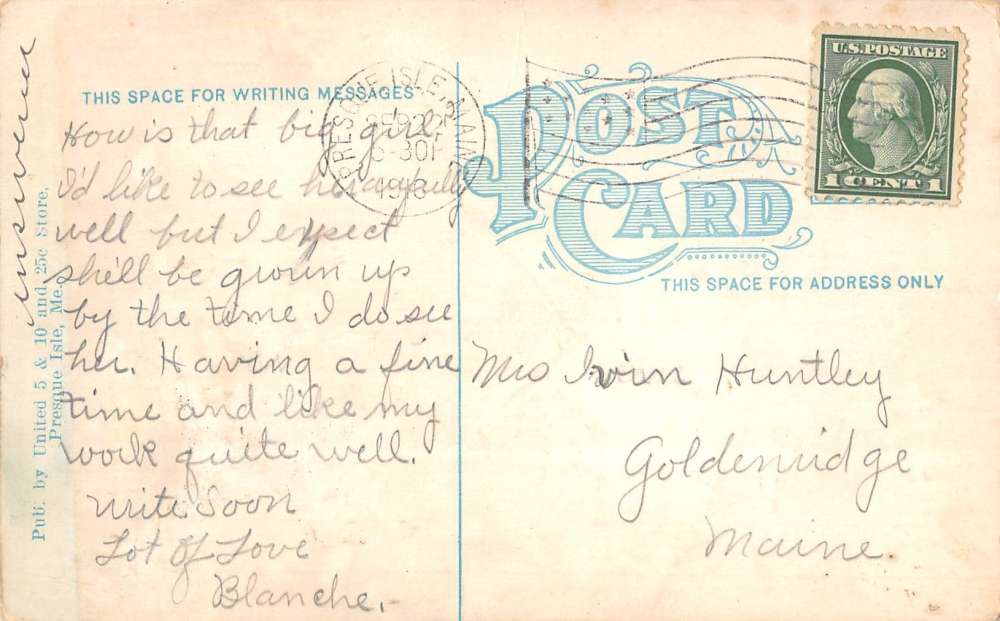 THIS SPACE FOR WRITING MESSAGES
How is that big girl,
I'd like to see her awfully
well but I expect
she'll be grown up
by the time I do see
her. Having a fine
time and like my
work quite well.
Write Soon
Lot of Love
Blanche.
Pub. by United 5 & 10 and 25c Store,
Presque Isle, Me.
PRESQUE ISLE, MAINE
POST CARD
THIS SPACE FOR ADDRESS ONLY
U.S. POSTAGE
1 CENT 1
Mrs Irvin Huntley
Goldenridge
Maine.